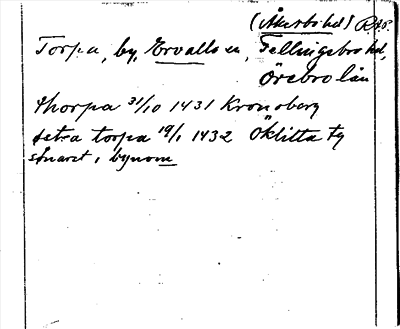 (Åkerbo hd) RAÄ.
Torpa, by, Ervalla sn, Fellingsbro hd,
Örebro län
thorpa 31/10 1431 Kronoberg
torpa 19/1 1432 Öklitta
bynom